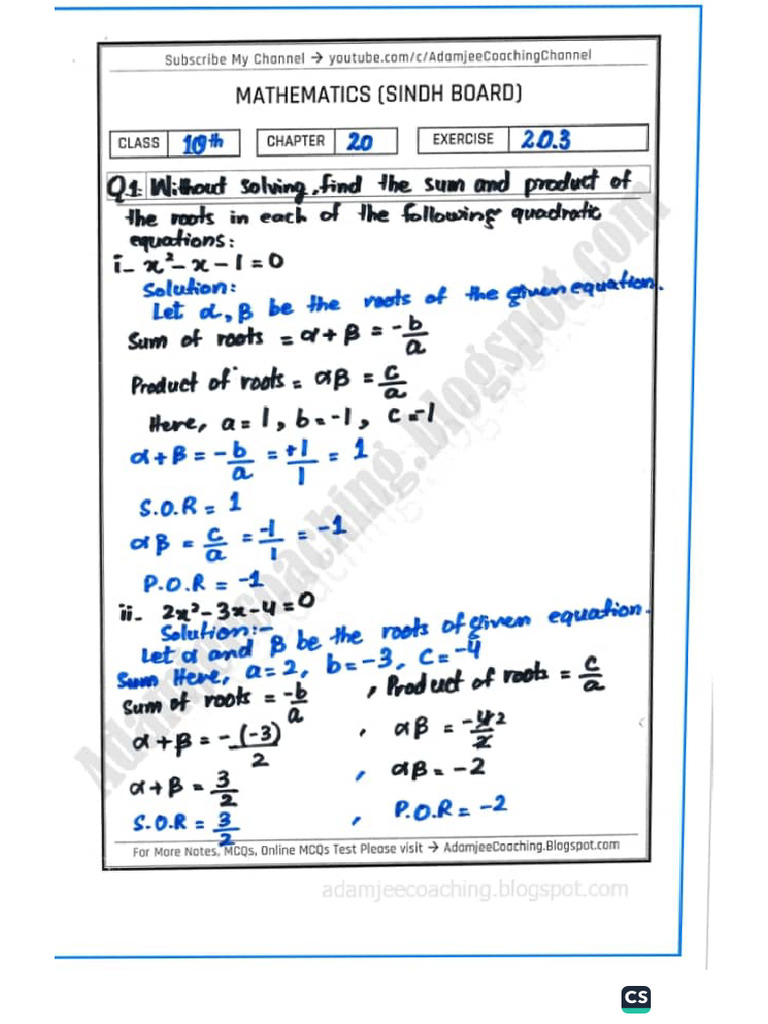 Subscribe My Channel → youtube.com/c/AdamjeeCoachingChannel
MATHEMATICS (SINDH BOARD)
CLASS 10th CHAPTER 20 EXERCISE 20.3
Q1: Without solving, find the sum and product of
the roots in each of the following quadratic
equations:
i- x² - x - 1 = 0
Solution:
Let α, β be the roots of the given equation.
Sum of roots = α + β = -b/a
Product of roots = αβ = c/a
Here, a = 1, b = -1, c = -1
α + β = -b/a = +1/1 = 1
S.O.R = 1
αβ = c/a = -1/1 = -1
P.O.R = -1
ii- 2x² - 3x - 4 = 0
Solution:-
Let α and β be the roots of given equation.
Sum Here, a = 2, b = -3, c = -4
Sum of roots = -b/a , Product of roots = c/a
α + β = -(-3)/2 , αβ = -4 2/2
α + β = 3/2 , αβ = -2
S.O.R = 3/2 , P.O.R = -2
For More Notes, MCQs, Online MCQs Test Please visit → AdamjeeCoaching.Blogspot.com
adamjeecoaching.blogspot.com
Adamjeecoaching.blogspot.com
CS